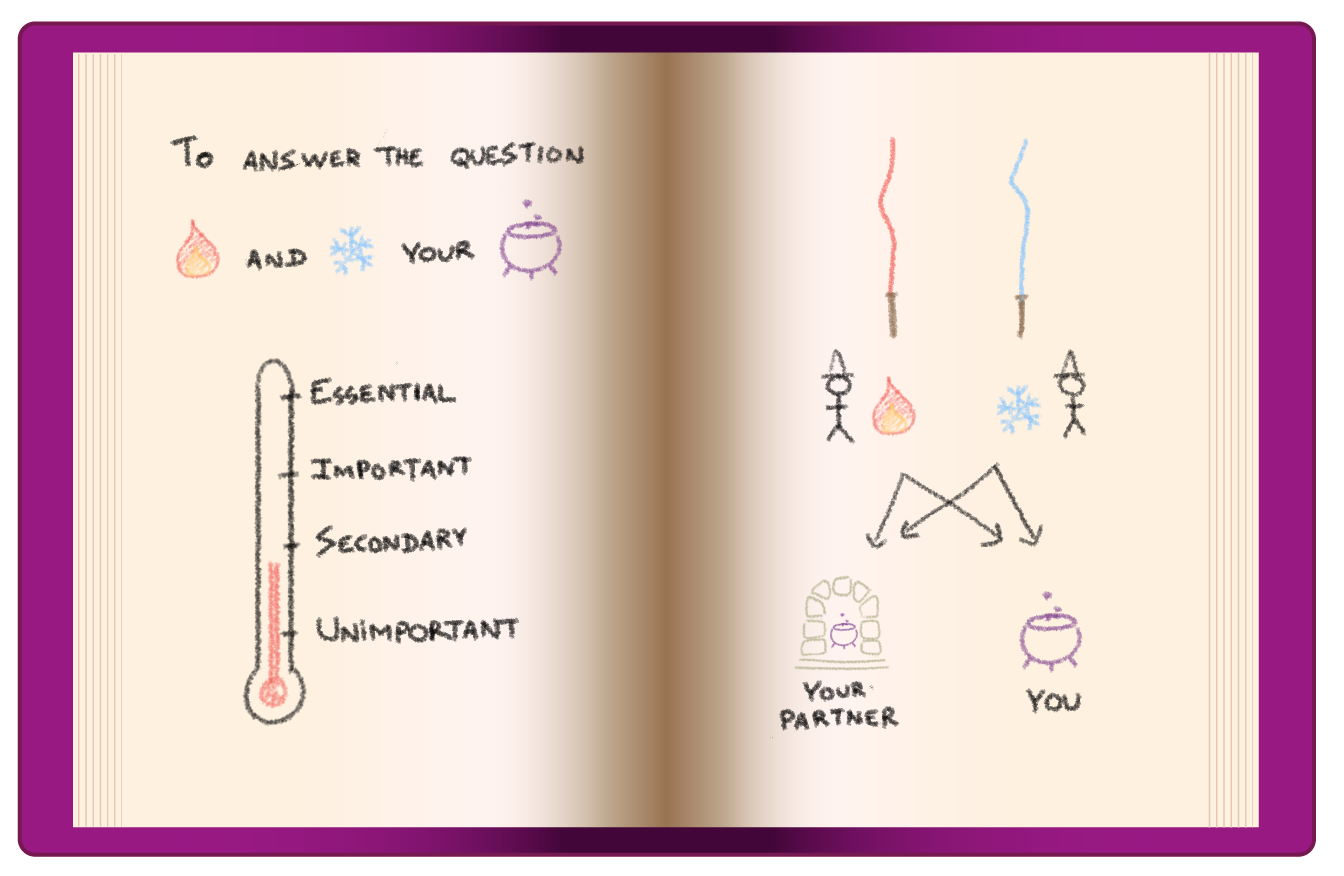 To ANSWER THE QUESTION
AND YOUR
ESSENTIAL
IMPORTANT
SECONDARY
UNIMPORTANT
YOUR
PARTNER
YOU